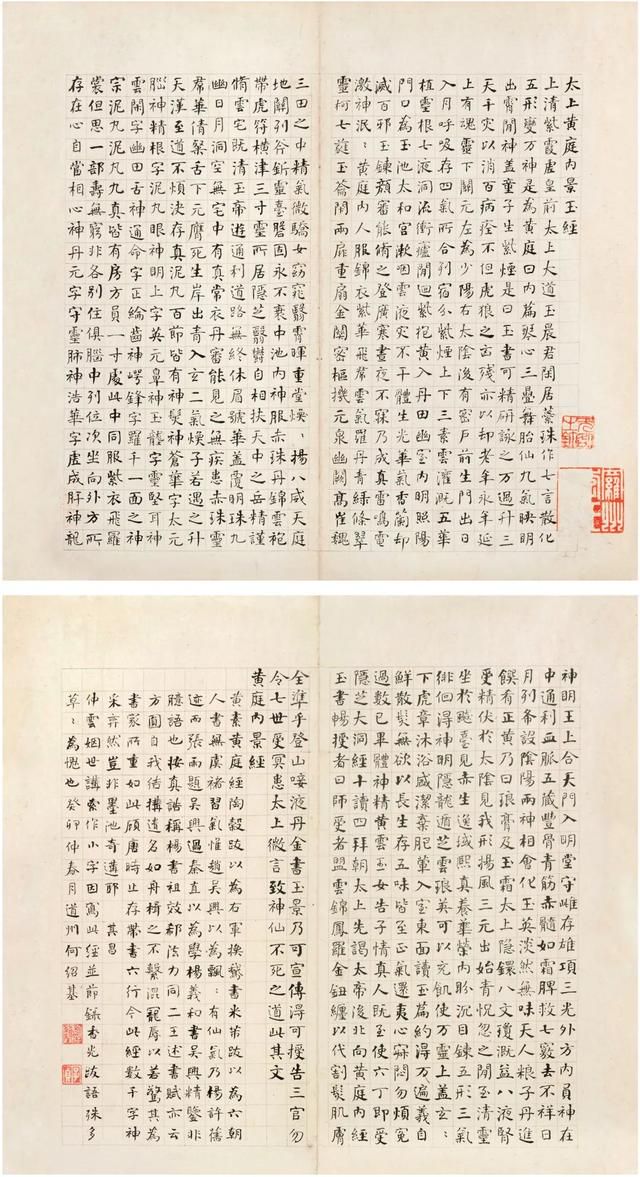 太上黄庭内景玉經
上清紫霞虛皇前太上大道玉晨君閑居蘂珠作七言散化
五形變万神是為黄庭曰内篇琴心三疊舞胎仙九氣映明
出霄間神蓋童子生紫煙是曰玉書可精研詠之万過升三
天千灾以消百病痊不但虎狼之凶殘亦以却老年永年延
上有魂靈下關元左為少陽右太陰後有密戶前生門出日
入月呼吸存四氣所合列宿分紫煙上下三素雲灌溉五華
植靈根七液洞流衝廬間迴紫抱黄入丹田幽室内明照陽
門口為玉池太和宫漱咽雲液灾不干體生光華氣香蘭却
滅百邪玉鍊顔審能術之登廣寒晝夜不寐乃成真雷鳴電
激神泯:黄庭内人服錦衣紫華飛羣雲氣羅丹青緑條翠
靈柯七蕤玉籥閉兩扉重扇金關密樞機元泉幽闕高崔巍
三田之中精氣微嬌女窈窕翳霄暉重堂煥:揚八威天庭
地關列谷斲靈臺磐固永不衰中池内神服赤珠丹錦雲袍
帶虎符横津三寸靈所居隱芝翳鬱自相扶天中之岳精謹
脩雲宅既清玉帝遊通利道路無終休眉號華蓋覆明珠九
幽日月洞空無宅中有真常衣丹審能見之無疾患赤珠靈
羣華蒨粲舌下元膺死生岸出青入玄二氣煥子若遇之升
天漢至道不煩決存真泥丸百節皆有神髮神蒼華字太元
腦神精根字泥丸眼神明上字英元鼻神玉壟字靈堅耳神
雲閑字幽田舌神通命字正綸齒神崿鋒字羅千一面之神
宗泥丸泥丸九真皆有房方員一寸處此中同服紫衣飛羅
裳但思一部壽無窮非各別住俱腦中列位次坐向外方所
存在心自當相心神丹元字守靈肺神浩華字虛成肝神龍
神明王上合天門入明堂守雌存雄項三光外方内員神在
中通利血脈五藏豐骨青筋赤髓如霜脾救七竅去不祥日
月列希設陰陽兩神相會化玉英淡然無味天人粮子丹進
饌肴正黄乃曰琅膏及玉霜太上隱鐶八文瓊溉益八液腎
受精伏於太陰見我形揚風三元出始青怳忽之間至清靈
坐於飈臺見赤生逸域熙真養華榮内盻沉目鍊五形三氣
徘徊得神明隱龍遁芝雲琅英可以充飢使万靈上蓋玄:
下虎章沐浴盛潔棄肥葷入室東面讀玉篇約得万遍義自
鮮散髮無欲以長生存五味皆至正氣還夷心寂悶勿煩冤
過數已畢體神精黄雲玉女告子情真人既至使六丁即受
隱芝大洞經十讀四拜朝太上先謁太帝後北向黄庭内經
玉書暢授者曰師受者盟雲錦鳳羅金鈕纏以代割髮肌膚
全準乎登山唼液丹金書玉景乃可宣傳得可授告三官勿
令七世受冥患太上微言致神仙不死之道此其文
黄庭内景經
黄素黄庭經陶穀跋以為右軍换鵝書米芾跋以為六朝
人書無虞褚習氣惟趙吴興以為飄:有仙氣乃楊許舊
迹而張雨題吴興過秦直以為學楊義和書吴興精鑒非
臆語也按真誥稱楊書祖效郗法力同二王述書賦亦云
方圓自我結構遺名如舟楫之不繫混寵辱以若驚其為
書家所重如此顧唐時止存帶書六行今此經數千字神
采弈然豈非墨池奇遘耶 其昌
仲雲姻世講索作小字因寫此經並節録香光跋語殊多
草:為愧也癸卯仲春月道州何紹基